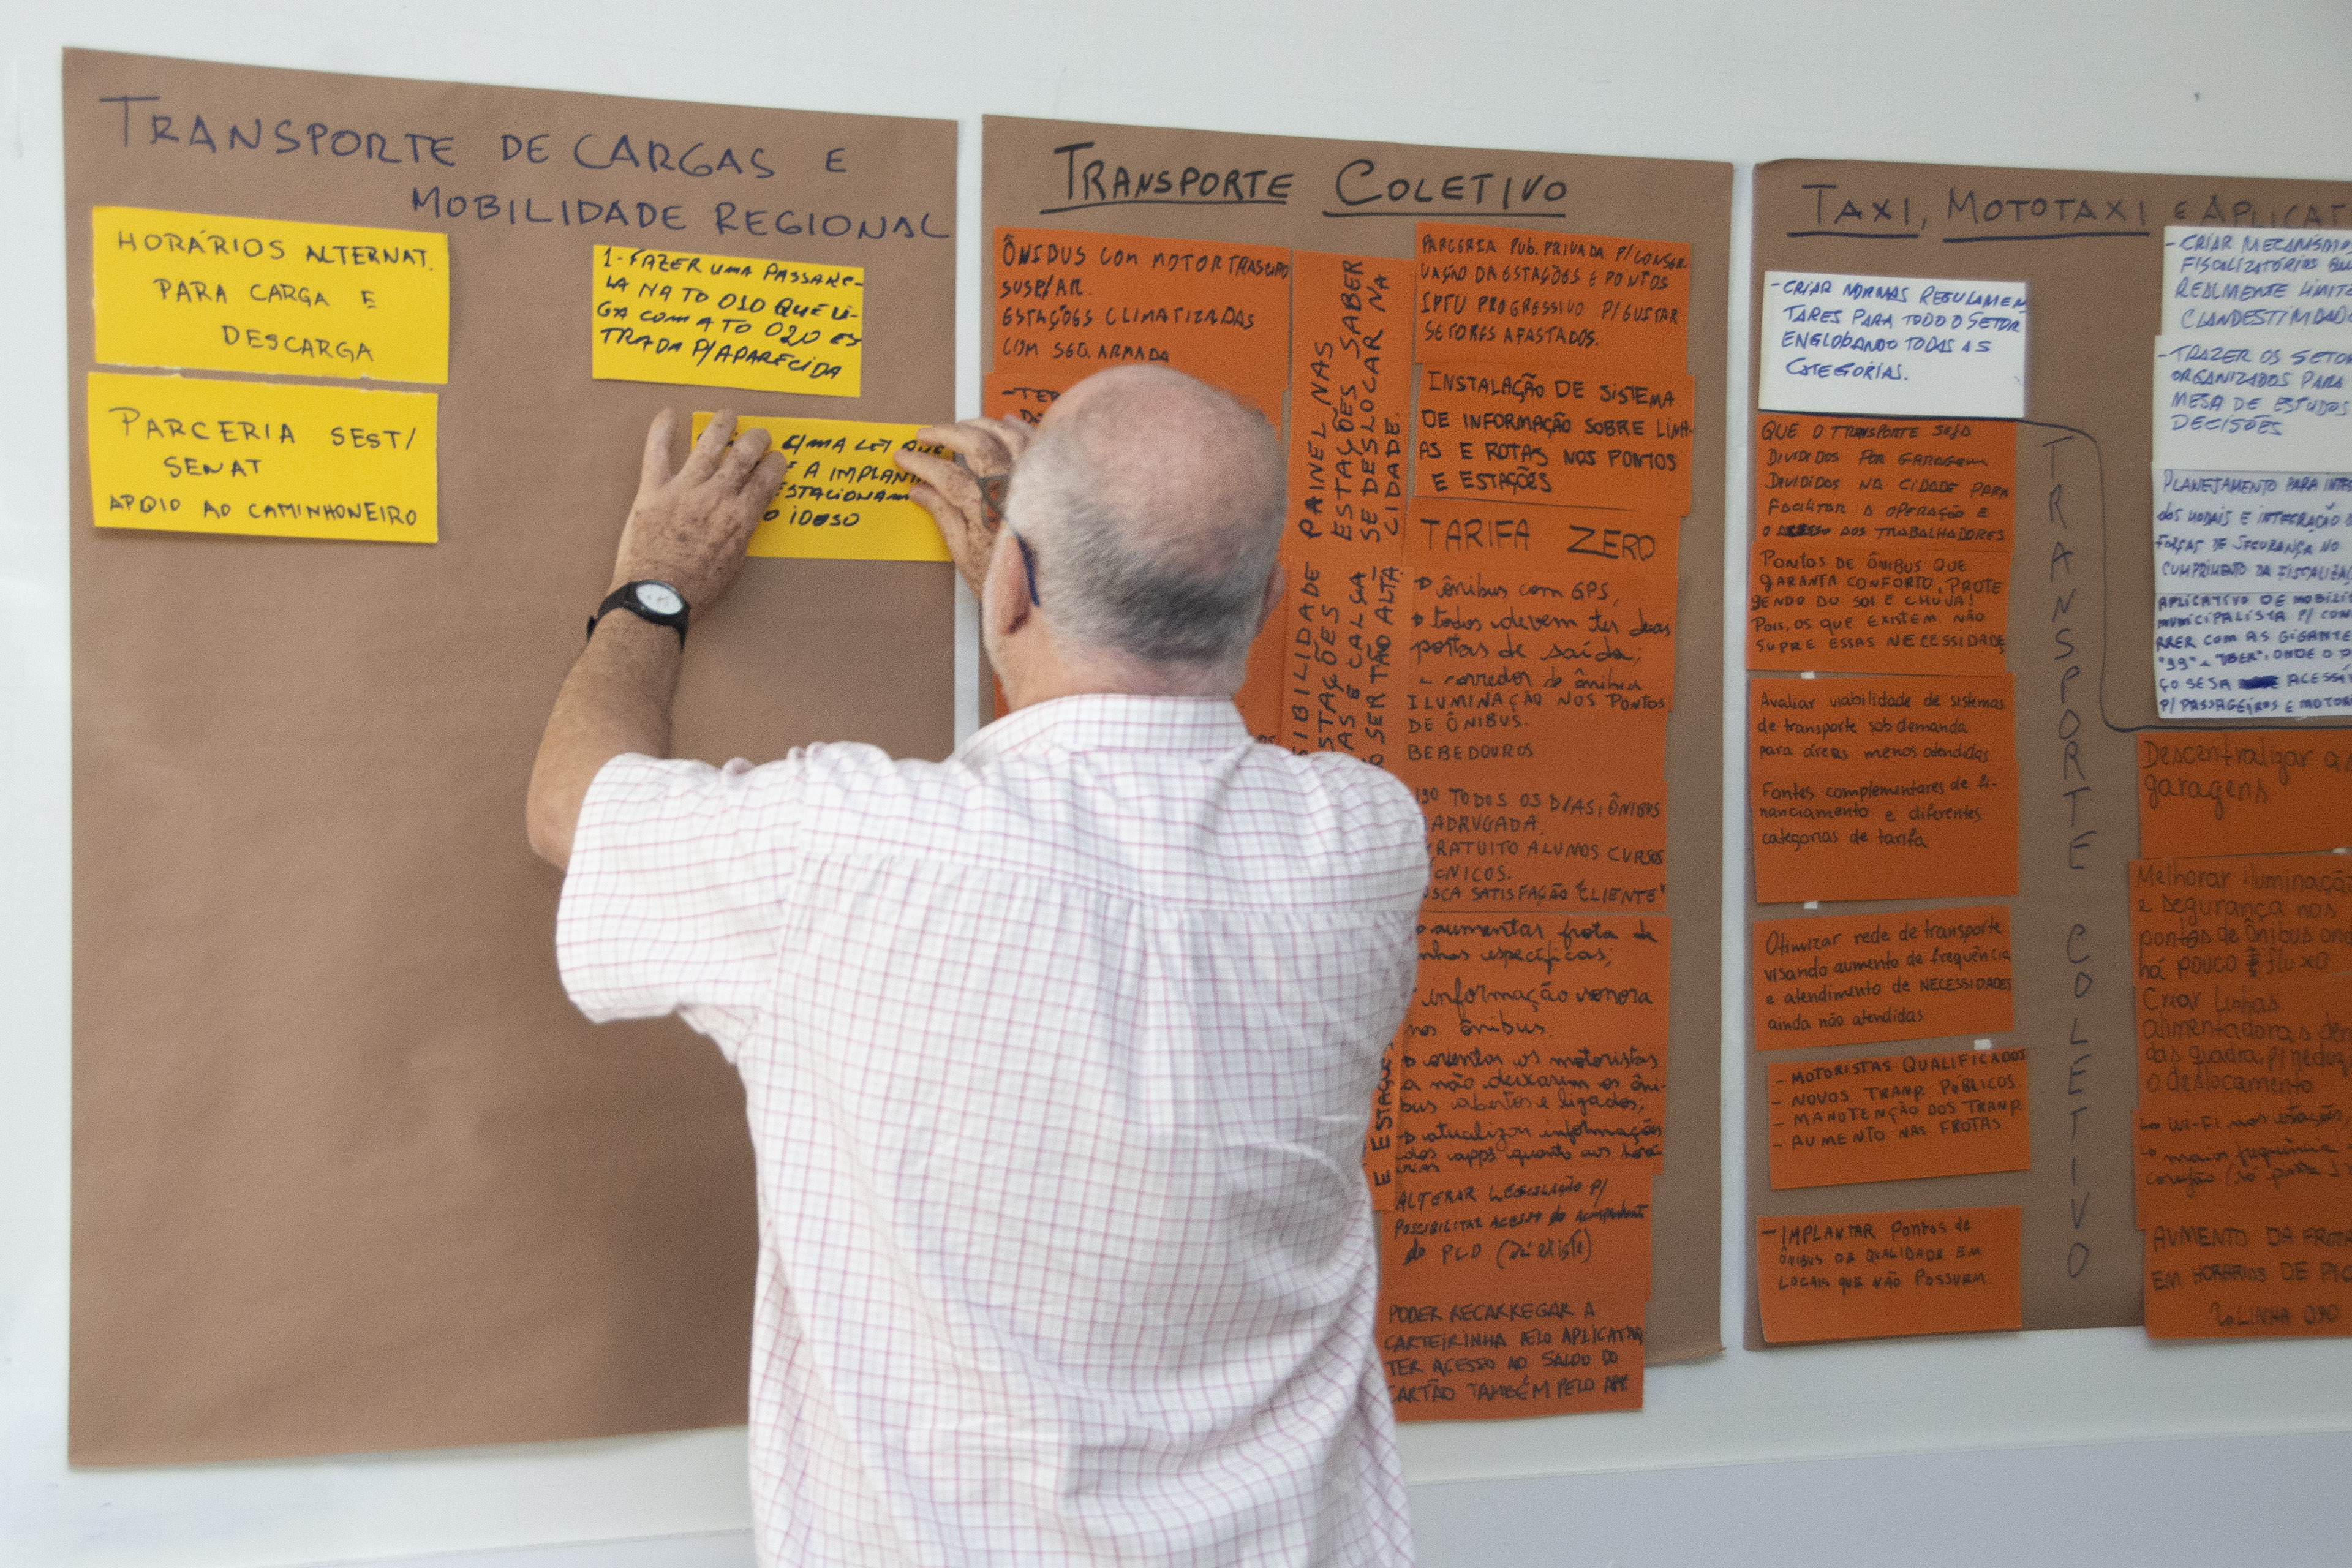 TRANSPORTE DE CARGAS E
MOBILIDADE REGIONAL
HORÁRIOS ALTERNAT.
PARA CARGA E
DESCARGA
PARCERIA SEST/
SENAT
APOIO AO CAMINHONEIRO
1- FAZER UMA PASSARE-
LA NA TO 010 QUE LI-
GA COM A TO 020 ES
TRADA P/ APARECIDA
UMA LEI QUE
E A IMPLANT
ESTACIONAM
O IDOSO
TRANSPORTE COLETIVO
ÔNIBUS COM MOTOR TRASEIRO
SUSP/AR.
ESTAÇÕES CLIMATIZADAS
COM SEG. ARMADA
-TER
PAINEL NAS
ESTAÇÕES SABER
SE DESLOCAR NA
CIDADE.
SIBILIDADE
STAÇÕES
AS E CALSA
O SER TÃO ALTA
E ESTAÇÕES
PARCERIA PUB. PRIVADA P/ CONSER-
VAÇÃO DA ESTAÇÕES E PONTOS
IPTU PROGRESSIVO P/ CUSTAR
SETORES AFASTADOS.
INSTALAÇÃO DE SISTEMA
DE INFORMAÇÃO SOBRE LINH-
AS E ROTAS NOS PONTOS
E ESTAÇÕES
TARIFA ZERO
ônibus com GPS,
todos devem ter duas
portas de saída;
corredor de ônibus
ILUMINAÇÃO NOS PONTOS
DE ÔNIBUS.
BEBEDOUROS
190 TODOS OS DIAS, ÔNIBUS
ADRUGADA.
RATUITO ALUNOS CURSOS
CNICOS.
USCA SATISFAÇÃO "CLIENTE"
aumentar frota de
nhas específicas;
informação sonora
nos ônibus.
orientar os motoristas
a não deixarem os ôni-
bus abertos e ligados;
atualizar informações
dos apps quanto aos horá-
rios
ALTERAR LEGISLAÇÃO P/
POSSIBILITAR ACESSO
do PCD (Já existe)
PODER RECARREGAR A
CARTEIRINHA PELO APLICATIVO,
TER ACESSO AO SALDO DO
CARTÃO TAMBÉM PELO APP
TAXI, MOTOTAXI E APLICAT
-CRIAR NORMAS REGULAMEN
TARES PARA TODO O SETOR
ENGLOBANDO TODAS AS
CATEGORIAS.
QUE O TRANSPORTE SEJA
DIVIDIDOS POR GARAGEM
DIVIDIDOS NA CIDADE PARA
FACILITAR A OPERAÇÃO E
O ACESSO DOS TRABALHADORES
PONTOS DE ÔNIBUS QUE
GARANTA CONFORTO, PROTE
GENDO DO SOL E CHUVA!
POIS, OS QUE EXISTEM NÃO
SUPRE ESSAS NECESSIDADE
Avaliar viabilidade de sistemas
de transporte sob demanda
para áreas menos atendidas
Fontes complementares de fi-
nanciamento e diferentes
categorias de tarifa
Otimizar rede de transporte
visando aumento de frequência
e atendimento de NECESSIDADES
ainda não atendidas
- MOTORISTAS QUALIFICADOS
- NOVOS TRANP. PÚBLICOS
- MANUTENÇÃO DOS TRANP.
- AUMENTO NAS FROTAS
- IMPLANTAR PONTOS DE
ÔNIBUS DE QUALIDADE EM
LOCAIS QUE NÃO POSSUEM.
TRANSPORTE COLETIVO
- CRIAR MECANISMO
FISCALIZATÓRIOS
REALMENTE LIMITE
CLANDESTINIDADE
- TRAZER OS SETOR
ORGANIZADOS PARA
MESA DE ESTUDOS
DECISÕES
PLANEJAMENTO PARA INTE
DOS MODAIS E INTEGRAÇÃO
FORÇAS DE SEGURANÇA NO
CUMPRIMENTO DA FISCALIZAÇ
APLICATIVO DE MOBILI
MUNICIPALISTA P/ CON
RRER COM AS GIGANTE
"99" e "UBER", ONDE O P
ÇO SEJA ACESSÍ
P/ PASSAGEIROS E MOTOR
Descentralizar a
garagens
Melhorar iluminaçã
e segurança nos
pontos de ônibus ond
há POUCO fluxo
Criar linhas
alimentadoras
das quadra p/ reduz
o deslocamento
Wi-Fi nas estações,
maior frequência
AUMENTO DA FROTA
EM HORÁRIOS DE PIC
LINHA 090